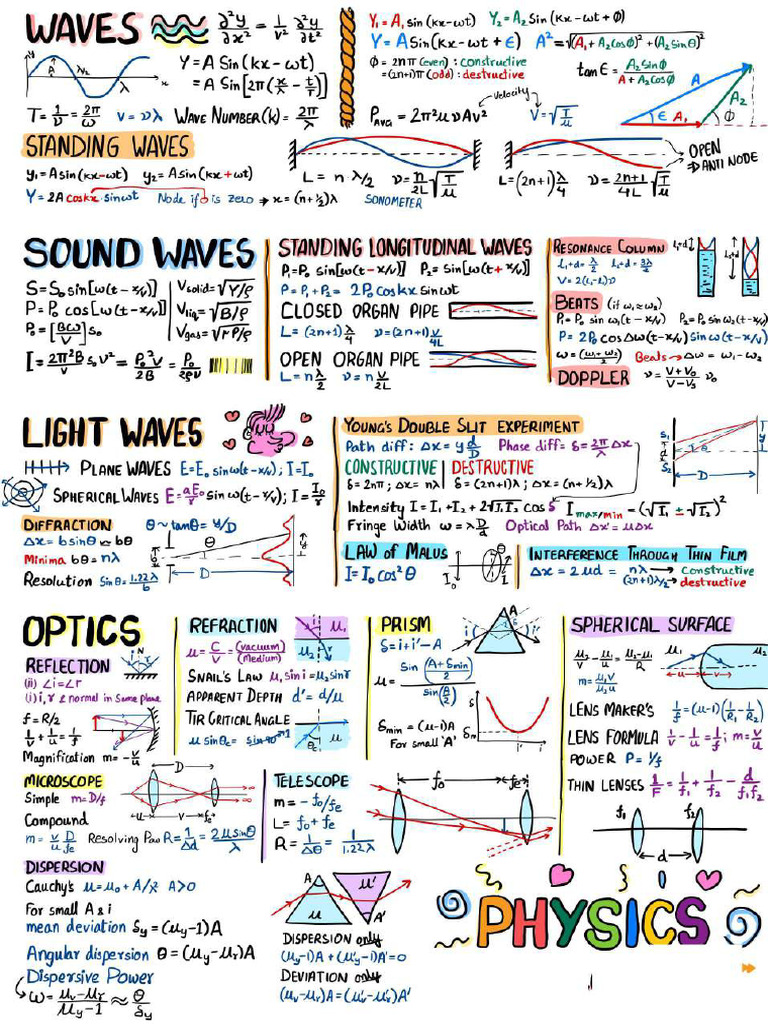 WAVES
∂²y/∂x² = 1/v² ∂²y/∂t²
y
A
λ/2
λ
x
Y = A Sin(kx - ωt)
= A Sin[2π(x/λ - t/T)]
T = 1/ν = 2π/ω
v = νλ
WAVE NUMBER(k) = 2π/λ
Y₁ = A₁ sin(kx - ωt) Y₂ = A₂ Sin(kx - ωt + ϕ)
Y = A Sin(kx - ωt + ϵ) A² = √(A₁ + A₂Cosϕ)² + (A₂Sinϕ)²
ϕ = 2nπ (even) : constructive
= (2n+1)π (odd) : destructive
tan ϵ = A₂Sinϕ/A + A₂Cosϕ
A
A₂
ϵ A₁ ϕ
Pavg = 2π²μνAv²
velocity
V = √T/μ
STANDING WAVES
y₁ = A sin(kx - ωt) y₂ = A Sin(kx + ωt)
Y = 2A coskx · sinωt Node if 0 is zero → x = (n + 1/2)λ
L = n·λ/2 ν = n/2L √T/μ
SONOMETER
L = (2n+1)λ/4 ν = 2n+1/4L √T/μ
OPEN
⇒ANTI NODE
SOUND WAVES
S = S₀ sin[ω(t - x/v)]
P = P₀ cos[ω(t - x/v)]
P₀ = [Bω/V] s₀
Vsolid = √Y/ρ
Vliq = √B/ρ
Vgas = √γP/ρ
I = 2π²B/v s₀ν² = P₀²V/2B = P₀/2ρv
STANDING LONGITUDINAL WAVES
P₁ = P₀ sin[ω(t - x/v)] P₂ = P₀ sin[ω(t + x/v)]
P = P₁ + P₂ = 2P₀ Coskx Sinωt
CLOSED ORGAN PIPE
L = (2n+1)λ/4 ν = (2n+1)V/4L
OPEN ORGAN PIPE
L = nλ/2 ν = n V/2L
RESONANCE COLUMN
l₁+d = λ/2 l₂+d = 3λ/4
V = 2(l₂-l₁)ν
l₁+d
l₂+d
BEATS (if ω₁≈ω₂)
P₁ = P₀ sin ω₁(t - x/v) P₂ = P₀ sin ω₂(t - x/v)
P = 2P₀ cosΔω(t - x/v) Sinω(t - x/v)
ω = (ω₁+ω₂)/2 Beats → Δω = ω₁ - ω₂
DOPPLER ν = V+V₀/V-Vs ν₀
LIGHT WAVES
PLANE WAVES E = E₀ sinω(t - x/v); I = I₀
SPHERICAL WAVES E = aE₀/r sinω(t - r/v); I = I₀/r²
DIFFRACTION θ ~ tanθ = y/D
Δx = bsinθ ≈ bθ
Minima bθ = nλ
Resolution Sinθ = 1.22λ/b
θ
y
D
YOUNG'S DOUBLE SLIT EXPERIMENT
Path diff: Δx = y d/D Phase diff = δ = 2π/λ Δx
CONSTRUCTIVE DESTRUCTIVE
δ = 2nπ; Δx = nλ δ = (2n+1)λ; Δx = (n + 1/2)λ
Intensity I = I₁ + I₂ + 2√I₁I₂ cos δ Imax/min = (√I₁ ± √I₂)²
Fringe Width ω = λD/d Optical Path Δx' = μΔx
S₁
d
S₂
θ
y
D
LAW OF MALUS
I = I₀ cos²θ
I₀
θ
I
INTERFERENCE THROUGH THIN FILM
Δx = 2μd = nλ → Constructive
(2n+1)λ/2 → destructive
OPTICS
REFLECTION
i N r
(ii) ∠i = ∠r
(i) i, r & normal in Same plane
f = R/2
1/v + 1/u = 1/f
Magnification m = -v/u
REFRACTION
μ₁
μ₂
μ = C/V = (vacuum)/(Medium)
SNAIL'S LAW μ₁ sin i = μ₂ sin r
APPARENT DEPTH d' = d/μ
TIR CRITICAL ANGLE
μ sinθc = sin90° 1
θc
PRISM
A
δ
i i'
δ = i + i' - A
μ = sin(A+δmin/2)/sin(A/2)
δmin = (μ-1)A
For small 'A'
δ
δm
i' i
SPHERICAL SURFACE
μ₂/v - μ₁/u = μ₂-μ₁/R
m = μ₁v/μ₂u
μ₁ μ₂
u v
LENS MAKER'S 1/f = (μ-1)(1/R₁ - 1/R₂)
LENS FORMULA 1/v - 1/u = 1/f; m = v/u
POWER P = 1/f
THIN LENSES 1/F = 1/f₁ + 1/f₂ - d/f₁f₂
f₁ f₂
d
MICROSCOPE
Simple m = D/f
Compound
m = v/u D/fe Resolving Pow R = 1/Δd = 2μsinθ/λ
D
u v fe
TELESCOPE
m = - f₀/fe
L = f₀ + fe
R = 1/Δθ = 1/1.22λ
f₀ fe
DISPERSION
Cauchy's μ = μ₀ + A/λ² A>0
For small A & i
mean deviation δy = (μy - 1)A
Angular dispersion θ = (μy - μr)A
Dispersive Power
ω = μv - μr/μy - 1 ≈ θ/δy
A μ' μ A'
DISPERSION only
(μy-1)A + (μ'y-1)A' = 0
DEVIATION only
(μv-μr)A = (μ'v-μ'r)A'
PHYSICS